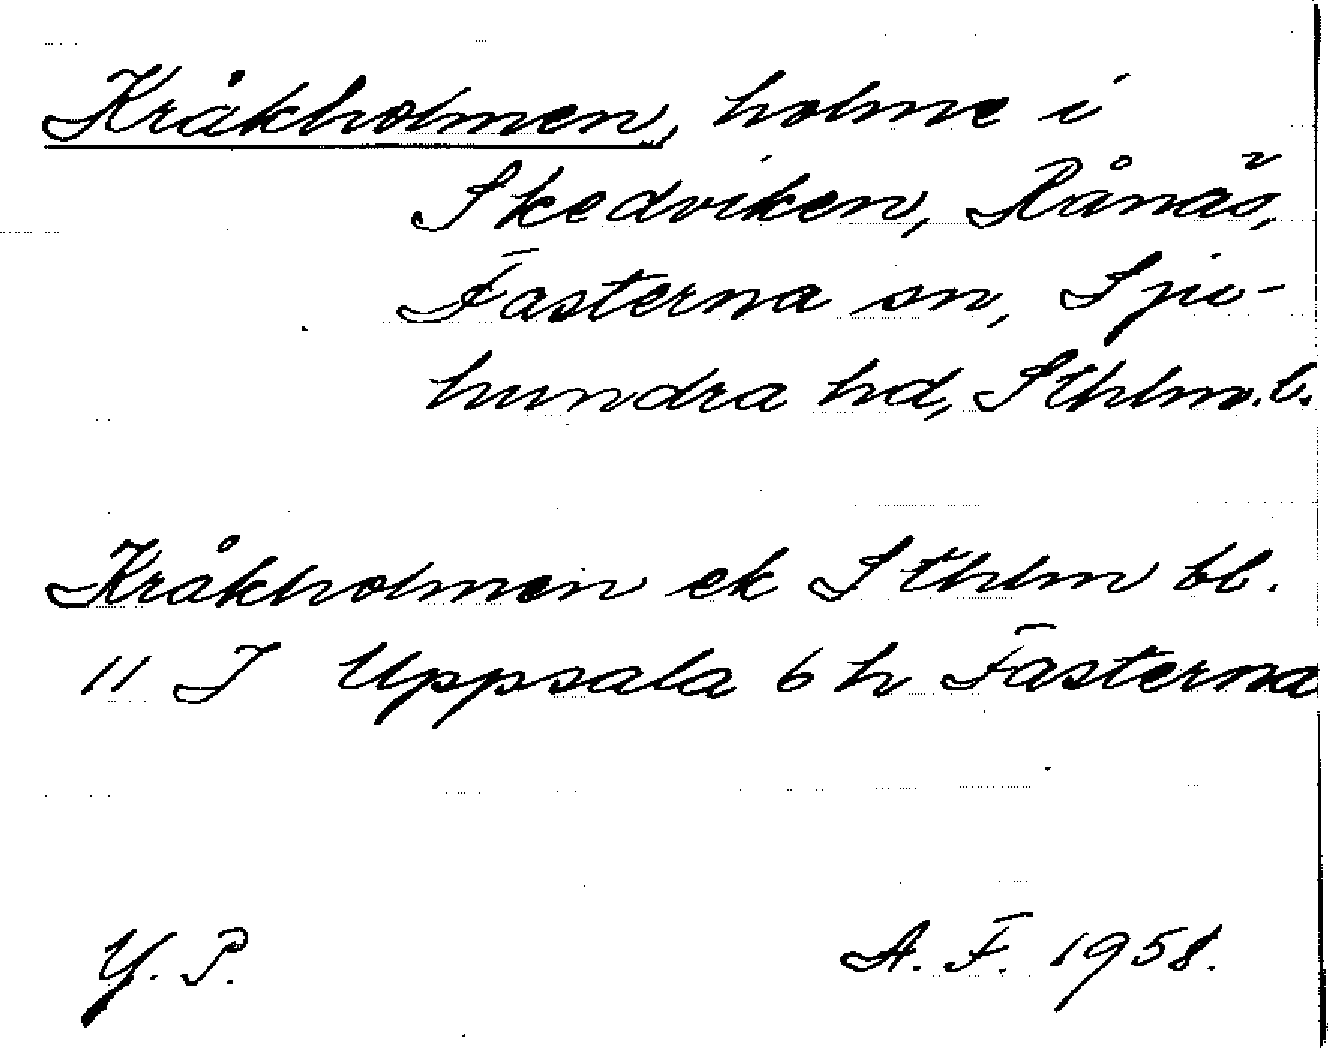 Kråkholmen, holme i
Skedviken, Rånäs,
Fasterna sn, Sju-
hundra hd, Sthlm.l.
Kråkholmen ek Sthlm bl.
11 I Uppsala 6 h Fasterna
Y. P.
A. F. 1958.